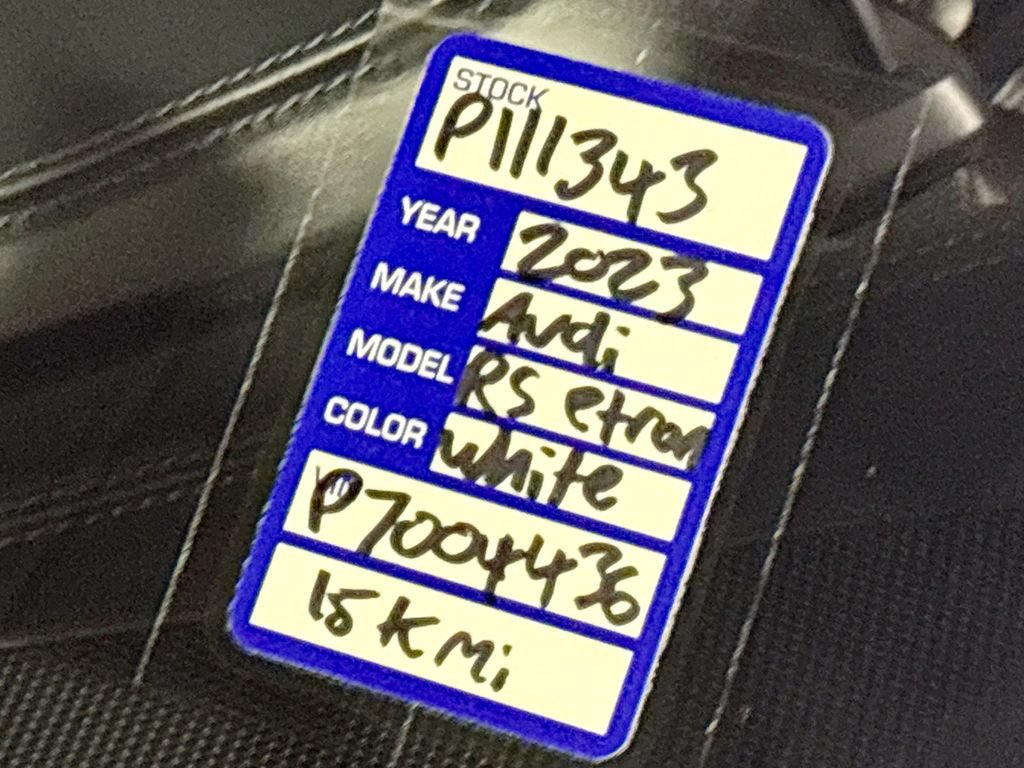 STOCK
P111343
YEAR 2023
MAKE Audi
MODEL RS etron
COLOR white
P7004436
15K Mi